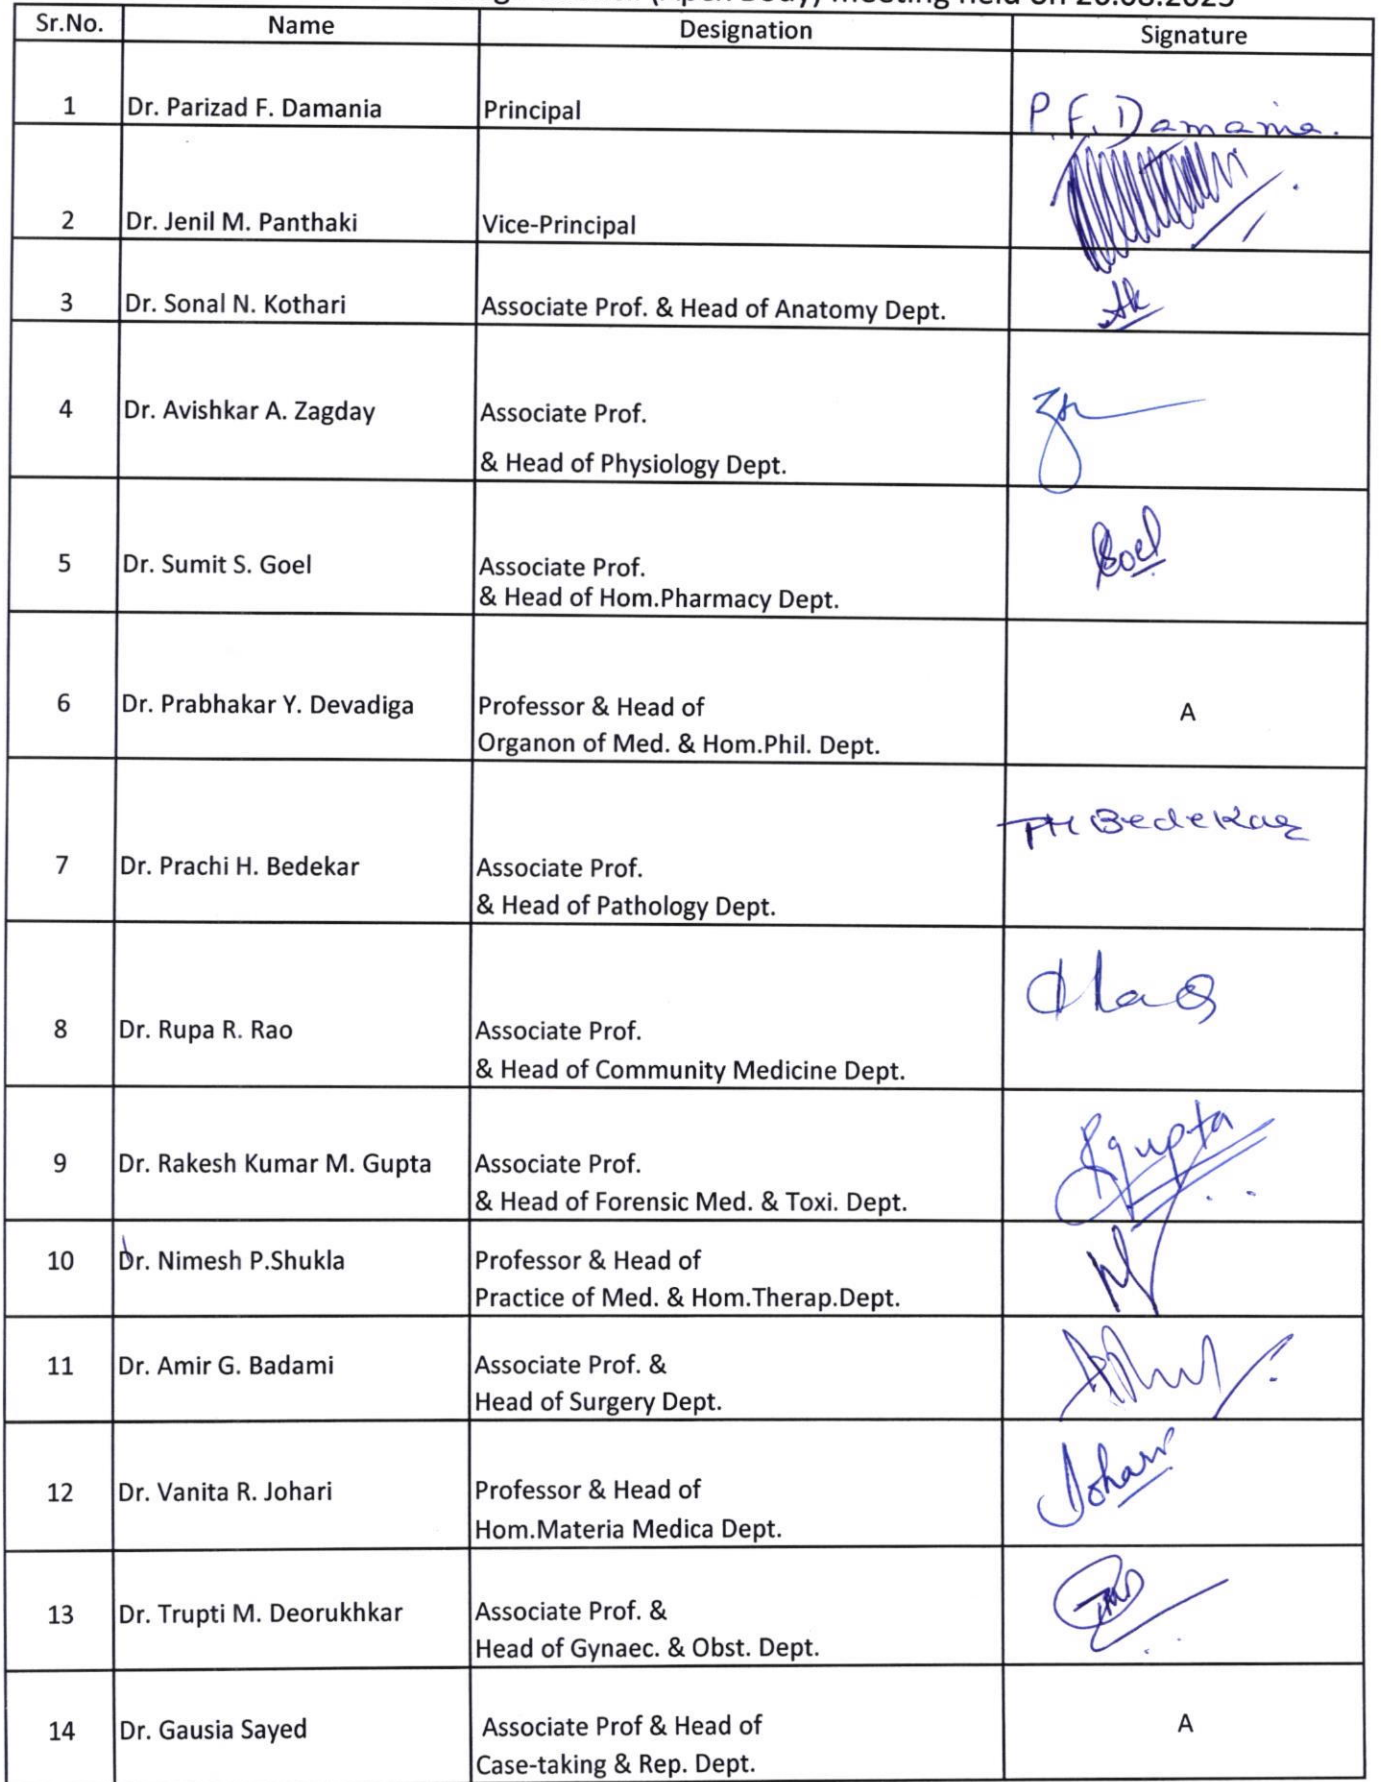 meeting held on
Sr.No. Name Designation Signature
1 Dr. Parizad F. Damania Principal P.F. Damania.
2 Dr. Jenil M. Panthaki Vice-Principal
3 Dr. Sonal N. Kothari Associate Prof. & Head of Anatomy Dept.
4 Dr. Avishkar A. Zagday Associate Prof.
& Head of Physiology Dept.
5 Dr. Sumit S. Goel Associate Prof. Goel
& Head of Hom.Pharmacy Dept.
6 Dr. Prabhakar Y. Devadiga Professor & Head of A
Organon of Med. & Hom.Phil. Dept.
PH Bedekar
7 Dr. Prachi H. Bedekar Associate Prof.
& Head of Pathology Dept.
8 Dr. Rupa R. Rao Associate Prof.
& Head of Community Medicine Dept.
9 Dr. Rakesh Kumar M. Gupta Associate Prof. Rgupta
& Head of Forensic Med. & Toxi. Dept.
10 Dr. Nimesh P.Shukla Professor & Head of
Practice of Med. & Hom.Therap.Dept.
11 Dr. Amir G. Badami Associate Prof. &
Head of Surgery Dept.
12 Dr. Vanita R. Johari Professor & Head of Johari
Hom.Materia Medica Dept.
13 Dr. Trupti M. Deorukhkar Associate Prof. &
Head of Gynaec. & Obst. Dept.
14 Dr. Gausia Sayed Associate Prof & Head of A
Case-taking & Rep. Dept.